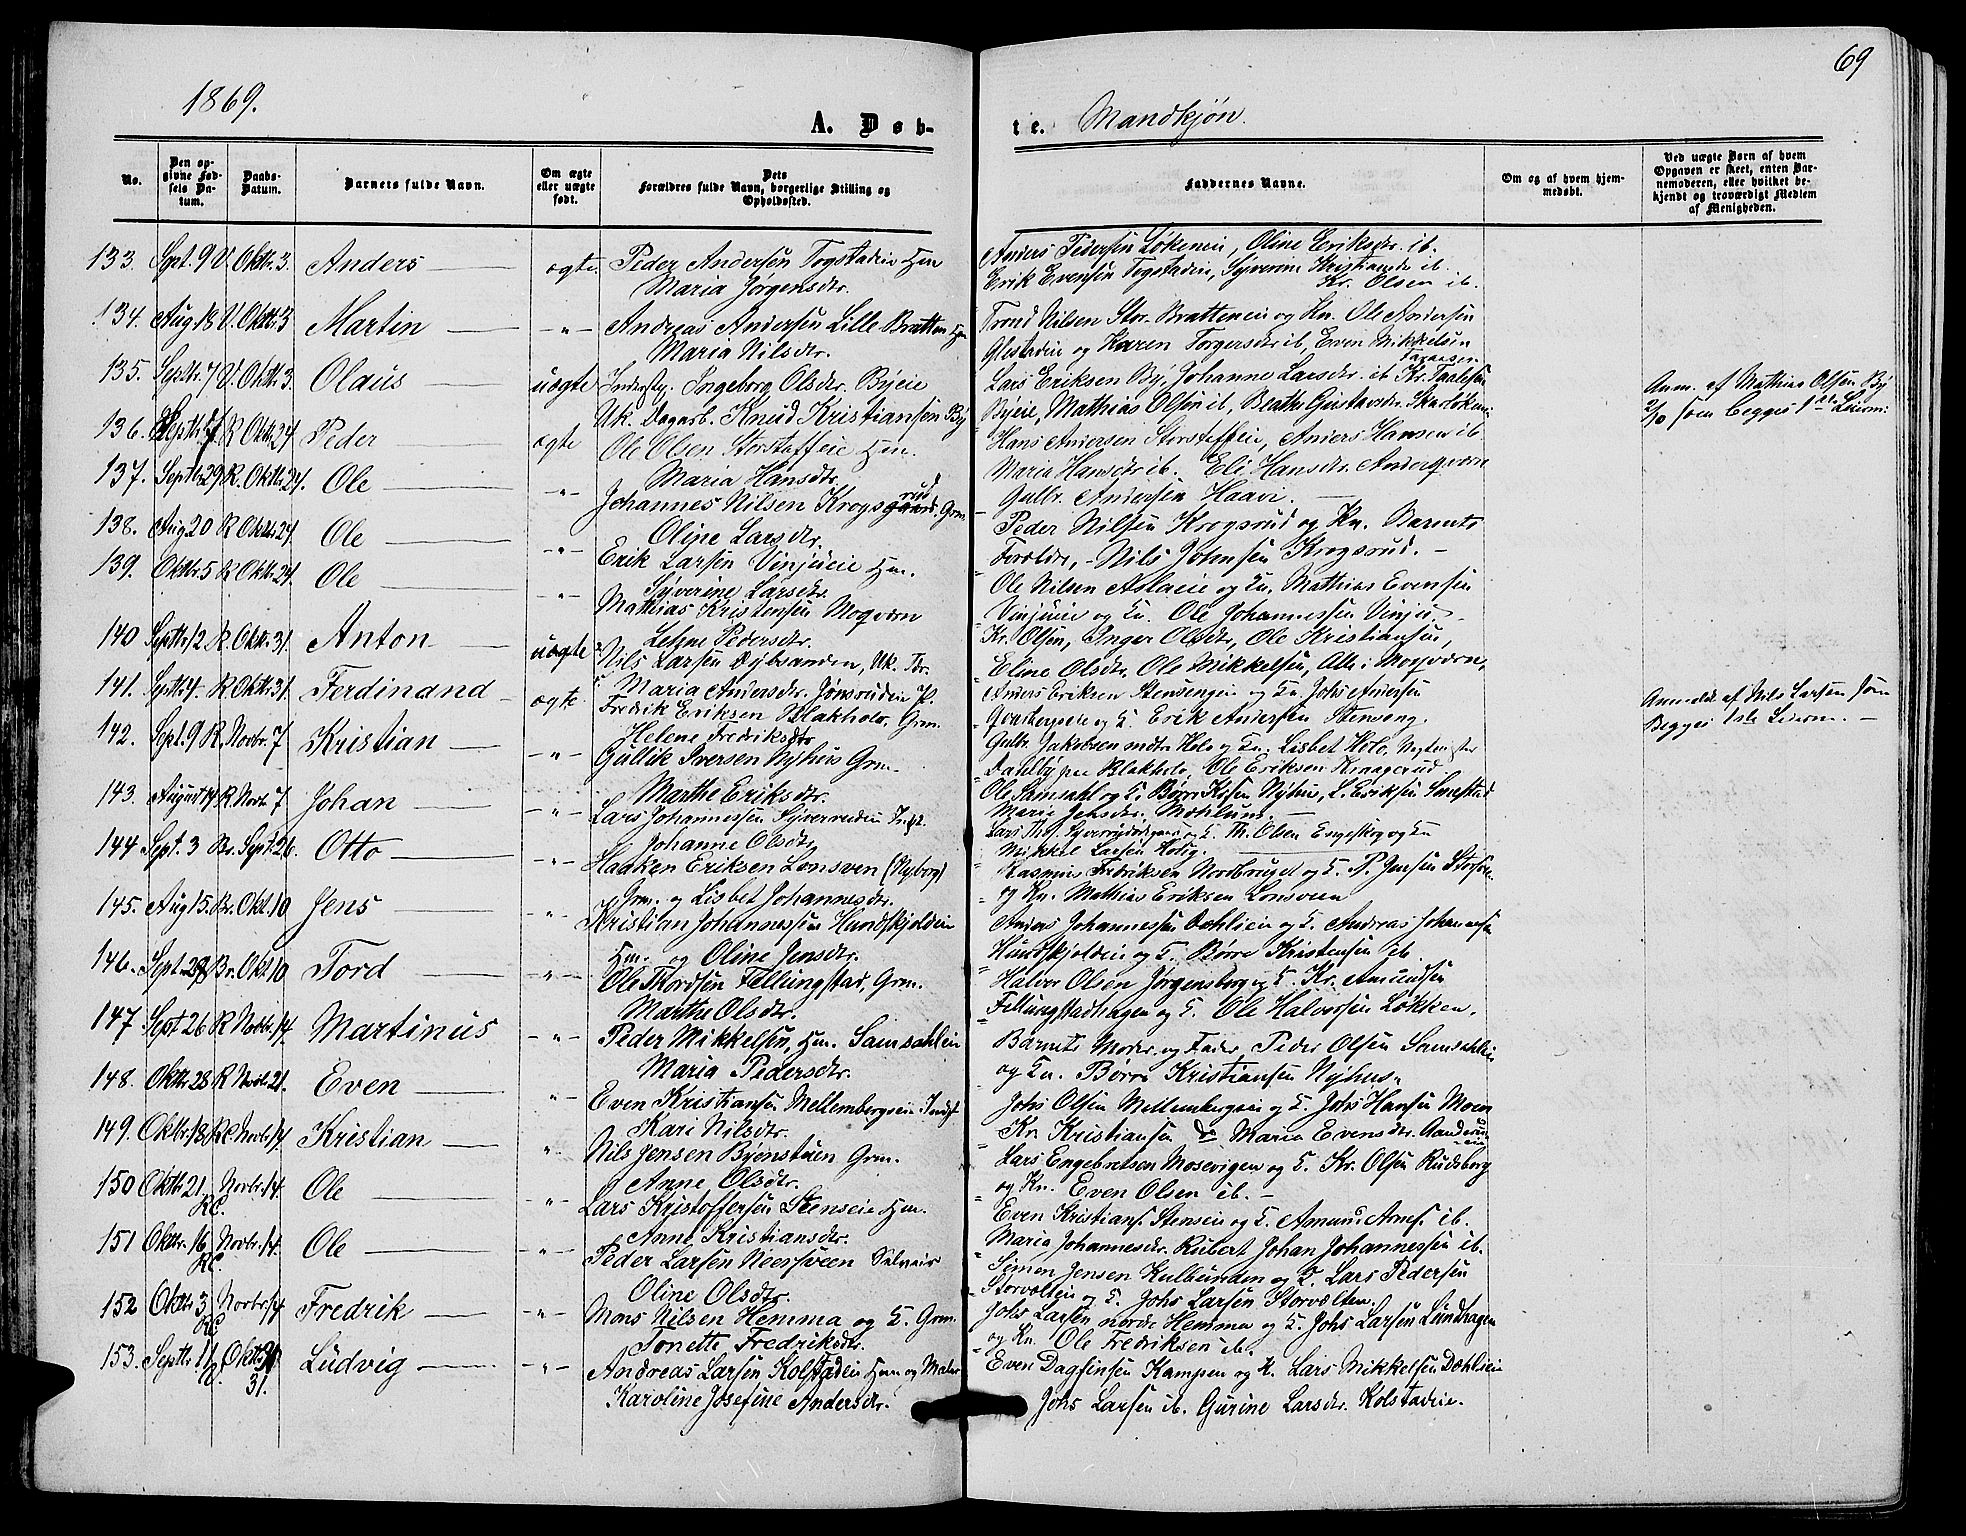 69
1869.
A. Døb-
te. Mandkjøn.
No.
Den op-
givne Fød-
sels Da-
tum.
Daabs-
Datum.
Barnets fulde Navn.
Om ægte
eller uægte
født.
Dets
Forældres fulde Navn, borgerlige Stilling og
Opholdssted.
Faddernes Navne.
Om og af hvem hjem-
medøbt.
Ved uægte Børn af hvem
Opgaven er skeet, enten Bar-
nemoderen, eller hvilket be-
kjendt og troværdigt Medlem
af Menigheden.
133. Sept. 9 V. Oktbr. 3. Anders ægte Peder Andersen Togstadeie Hm
Maria Jørgensdtr.
Anders Pedersen Løkeneie, Oline Eriksdr. ib.
Erik Evensen Togstadeie, Syverine Kristiansdr ib.
Kr. Olsen ib.
134. Aug 18 V. Oktbr. 3 Martin -"- Andreas Andersen Lille Bratten Hm
Maria Nilsdtr.
Trond Nilsen Stor. Bratteneie og Kn. Ole Andersen
Glestadeie og Karen Torgersdtr ib, Even Mikkelsen
135. Septbr. 7 V. Oktbr. 3. Olaus uægte Inderstp. Ingeborg Olsdtr. Byeie
Uk. Dagarb. Knud Kristiansen By
Lars Eriksen By, Johanne Larsdtr. ib Kr. Paalesen
Byeie, Mathias Olsen ib, Beathe Gustavsdtr. Skarløken
Anm. af Mathias Olsen By
2/10 som begges 1ste Leierm:
136. R Oktbr 24 Peder ægte Ole Olsen Storstaffeie Hm.
Maria Hansdtr.
Hans Andersen Storstaffeie, Anders Hansen ib
Maria Hansdtr ib. Eli Hansdtr.
137. Septbr. 29. R. Oktbr. 24. Ole -"- Johannes Nilsen Krogsrud. Grm.
Oline Larsdtr.
Gulbr. Andersen Haavi.
Peder Nilsen Krogsrud og Kn. Barnets
Forældre, Nils Johnsen Krogsrud.
138. Aug 20 R Oktbr. 24. Ole -"- Erik Larsen Vinjueie Hm.
Syverine Larsdtr.
Ole Nilsen Aslaeie og Kn. Mathias Evensen
Vinjueie og K. Ole Johannessen Vinju.
139. Oktbr. 5 R Oktbr. 24. Ole -"- Mathias Kristensen Moqværn
Lehne Pedersdtr.
Kr. Olsen, Inger Olsdtr, Ole Kristiansen,
Eline Olsdtr. Ole Mikkelsen, Alle i Moqværn.
140 Septbr 12 R. Oktbr. 31. Anton uægte Nils Larsen Dybsanden, Uk.
Maria Andersdtr. Jønsrudeie P.
Anders Eriksen Stensengen og K. Johs Andersen
og K. Erik Andersen Stenseng.
Anmeldt af Nils Larsen som
Begges 1ste Leierm.
141. Septbr 4 R Oktbr. 31. Ferdinand ægte Fredrik Eriksen Blakholo, Grm.
Helene Fredriksdtr
Gulbr. Jakobsen Holo og Kn. Lisbet Holo,
Dahlby paa Blakholo, Ole Eriksen Kraagerud
142. Sept. 9 R. Novbr. 7 Kristian -"- Gullik Iversen Nyhus Grm.
Marthe Eriksdtr.
Ole Samsahl og K. Børre Nyhus, L. Eriksen
Marie Jensdtr. Mohlum.
143. August 14 R. Novb. 7 Johan -"- Lars Johannessen Syverrudeie Indst.
Johanne Olsdtr.
Th. Olsen Engeskog og Kn
Mikkel Larsen
144 Sept. 3 Br. Sept. 26. Otto -"- Haaken Eriksen Lonsven (Nyborg)
Grm. og Lisbet Johannesdtr.
Rasmus Fredriksen Nordbruget og K. P. Jensen
og Kn. Mathias Eriksen Lonsveen
145. Aug 15. Br. Okt. 10 Jens -"- Kristian Johannessen Hundskjoldeie
Hm. og Oline Jensdtr.
Anders Johannessen Dæhlieie og K. Andreas Johannessen
Hundskjoldeie og K. Børre Kristensen ib.
146. Sept. 28 Br. Okt. 10 Tord -"- Ole Thordsen Fællingstad, Grm.
Marthe Olsdtr.
Halvor Olsen Jørgensberg og K. Kr. Amundsen
Fellingstadhagen og K. Ole Halvorsen Løkken.
147. Sept 26 R Novbr. 14. Martinus -"- Peder Mikkelsen, Hm. Samsahleie
Maria Pedersdtr.
Barnets Moder og Fader, Peder Olsen Samsahleie
og Kn. Børre Kristiansen Nyhus.
148. Oktbr 28 R Novbr 21. Even -"- Even Kristiansen Mellembergseie Indst
Kari Nilsdtr.
Johs Olsen Mellembergseie og K. Johs Hansen Moen
Kr. Kristiansen Maria Evensdtr.
149. Oktbr. 18 RC Novbr. 14 Kristian -"- Nils Jensen Byenstuen Grm.
Anne Olsdtr.
Lars Engebretsen Mosevigen og K. Kr. Olsen Rudsberg
og Kn. Even Olsen ib.
150 Oktbr 21 RC. Novbr. 14. Ole -"- Lars Kristoffersen Stenseie Hm.
Anne Kristiansdtr.
Even Kristians. Stenseie og K. Amund Arnes. ib.
Maria Johannesdtr. Rubert, Johan Johannessen ib.
151 Oktbr. 16 RC. Novbr. 14. Ole -"- Peder Larsen Neersveen Selveier
Oline Olsdtr.
Simen Jensen Kulbunden og K. Lars Pedersen
Storvolteie og K. Johs Larsen Storvolten.
152 Oktbr 3 RC Novbr. 14 Fredrik -"- Mons Nilsen Hemma og K. Grm.
Tonette Fredriksdtr.
Johs Larsen nordre Hemma og K. Johs Larsen Lundhagen
og Kn. Ole Fredriksen ib.
153. Septbr. 11 R. Oktbr. 31. Ludvig -"- Andreas Larsen Kolstadeie Hm og Maler
Karoline Josefine Andersdtr.
Even Dagfinsen Kampen og K. Lars Mikkelsen Dæhlieie
Johs Larsen ib. Gurine Larsdtr. Kolstadeie.